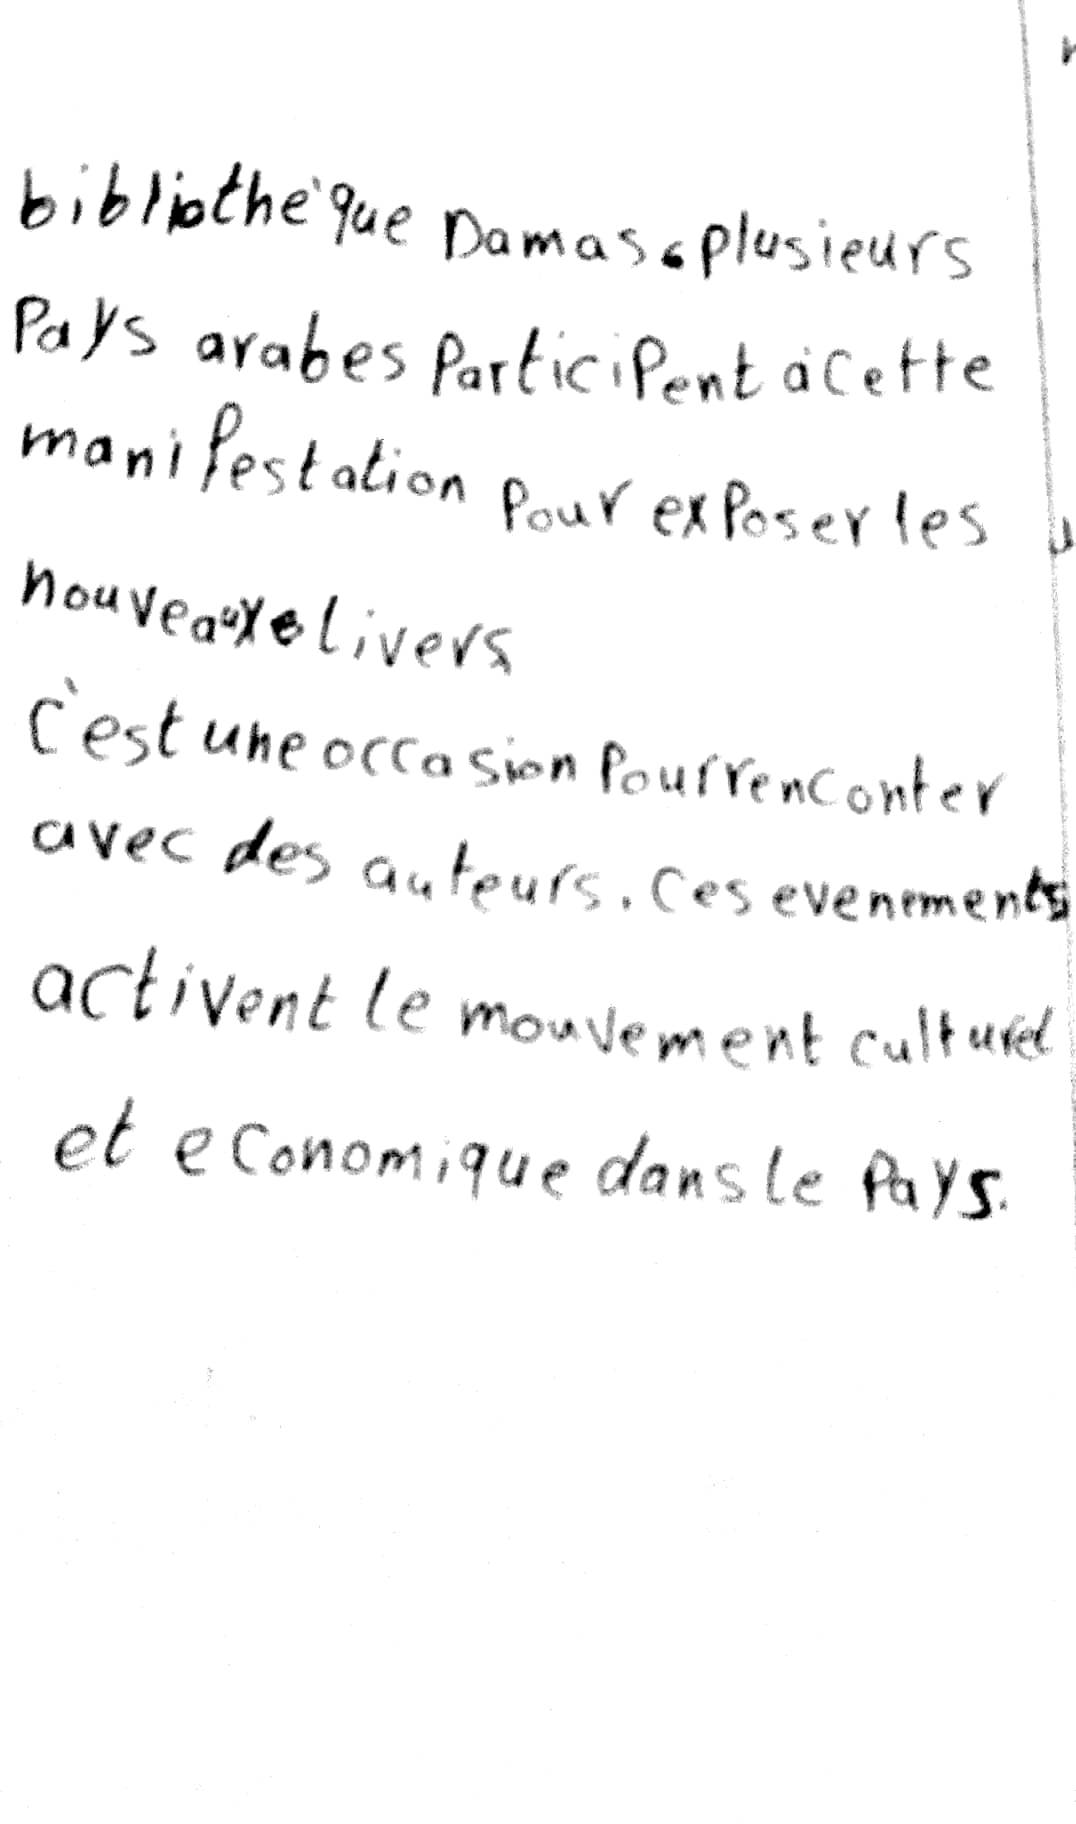 bibliothèque Damas, plusieurs
Pays arabes Participent à cette
manifestation Pour exPoser les
nouveaux livers
C'est une occasion Pour renconter
avec des auteurs. Ces evenements
activent le mouvement culturel
et economique dans le Pays.